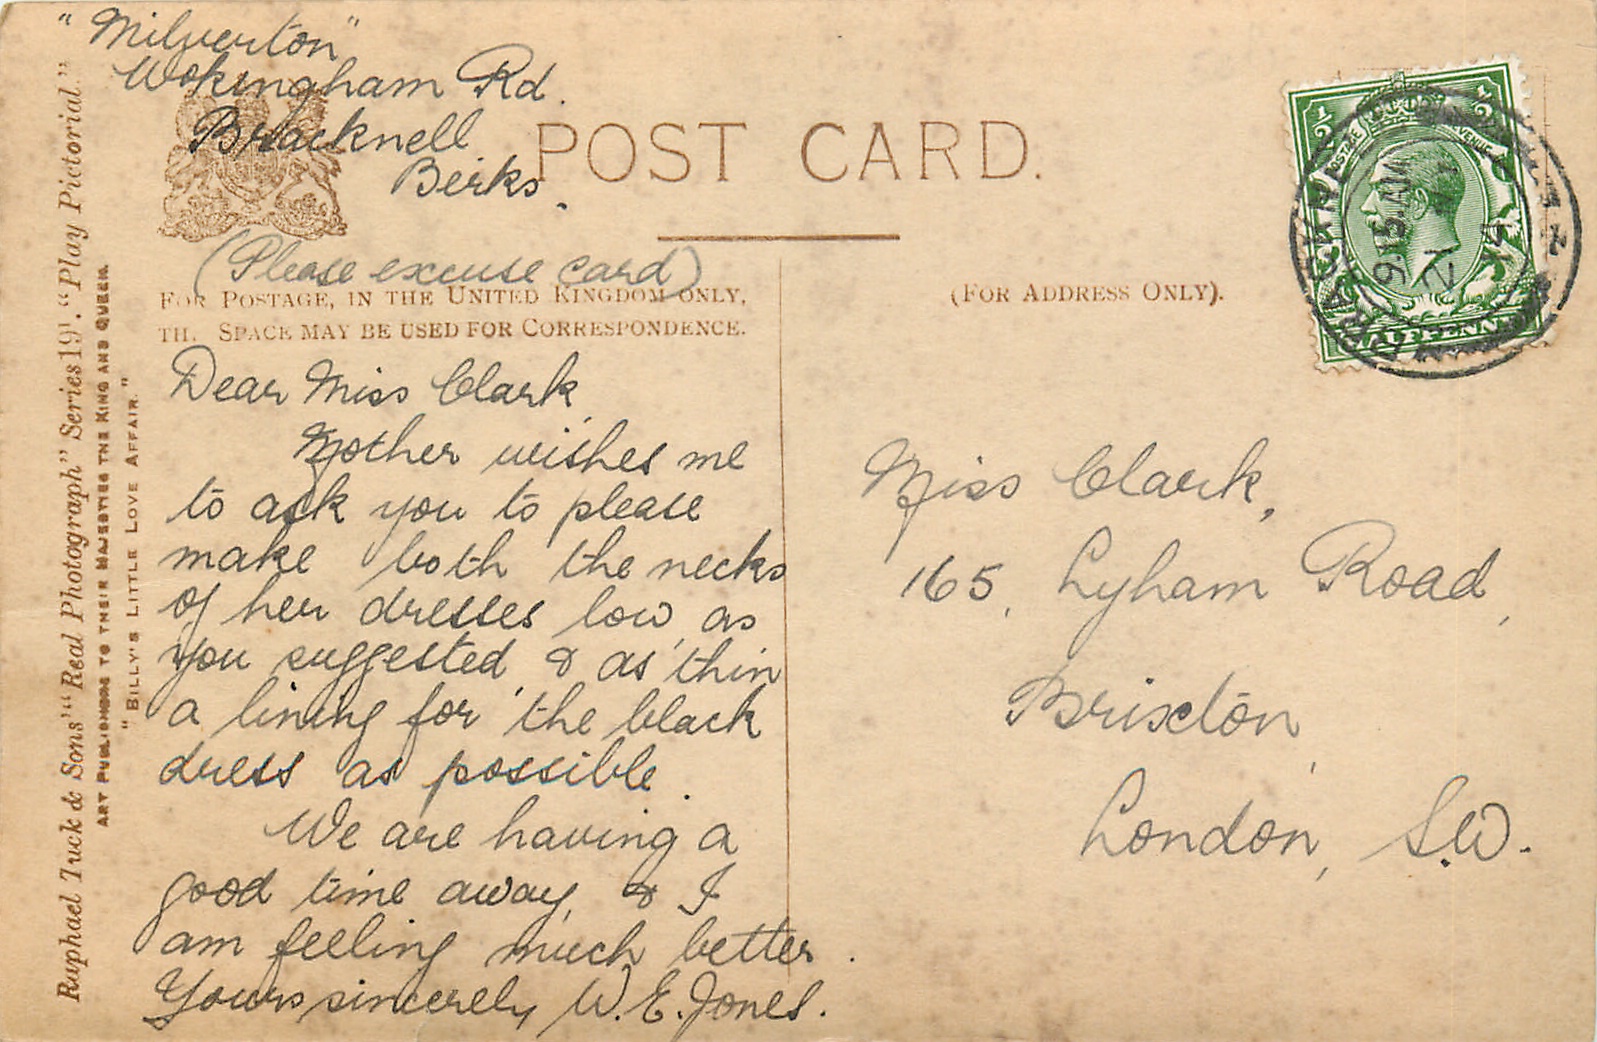 "Milverton"
Wokingham Rd.
Bracknell
Berks.
POST CARD.
(Please excuse card)
FOR POSTAGE, IN THE UNITED KINGDOM ONLY,
SPACE MAY BE USED FOR CORRESPONDENCE.
(FOR ADDRESS ONLY).
Dear Miss Clark
Mother wishes me
to ask you to please
make both the necks
of her dresses low, as
you suggested, & as thin
a lining for the black
dress as possible.
We are having a
good time away, & I
am feeling much better.
Yours sincerely W. E. Jones.
Miss Clark,
165, Lyham Road,
Brixton,
London, S.W.
Raphael Tuck & Sons' "Real Photograph" Series 191. "Play Pictorial."
ART PUBLISHERS TO THEIR MAJESTIES THE KING AND QUEEN.
"BILLY'S LITTLE LOVE AFFAIR."
1/2 1/2
POSTAGE REVENUE
HALFPENNY
BRACKNELL
9.15 AM
21
14